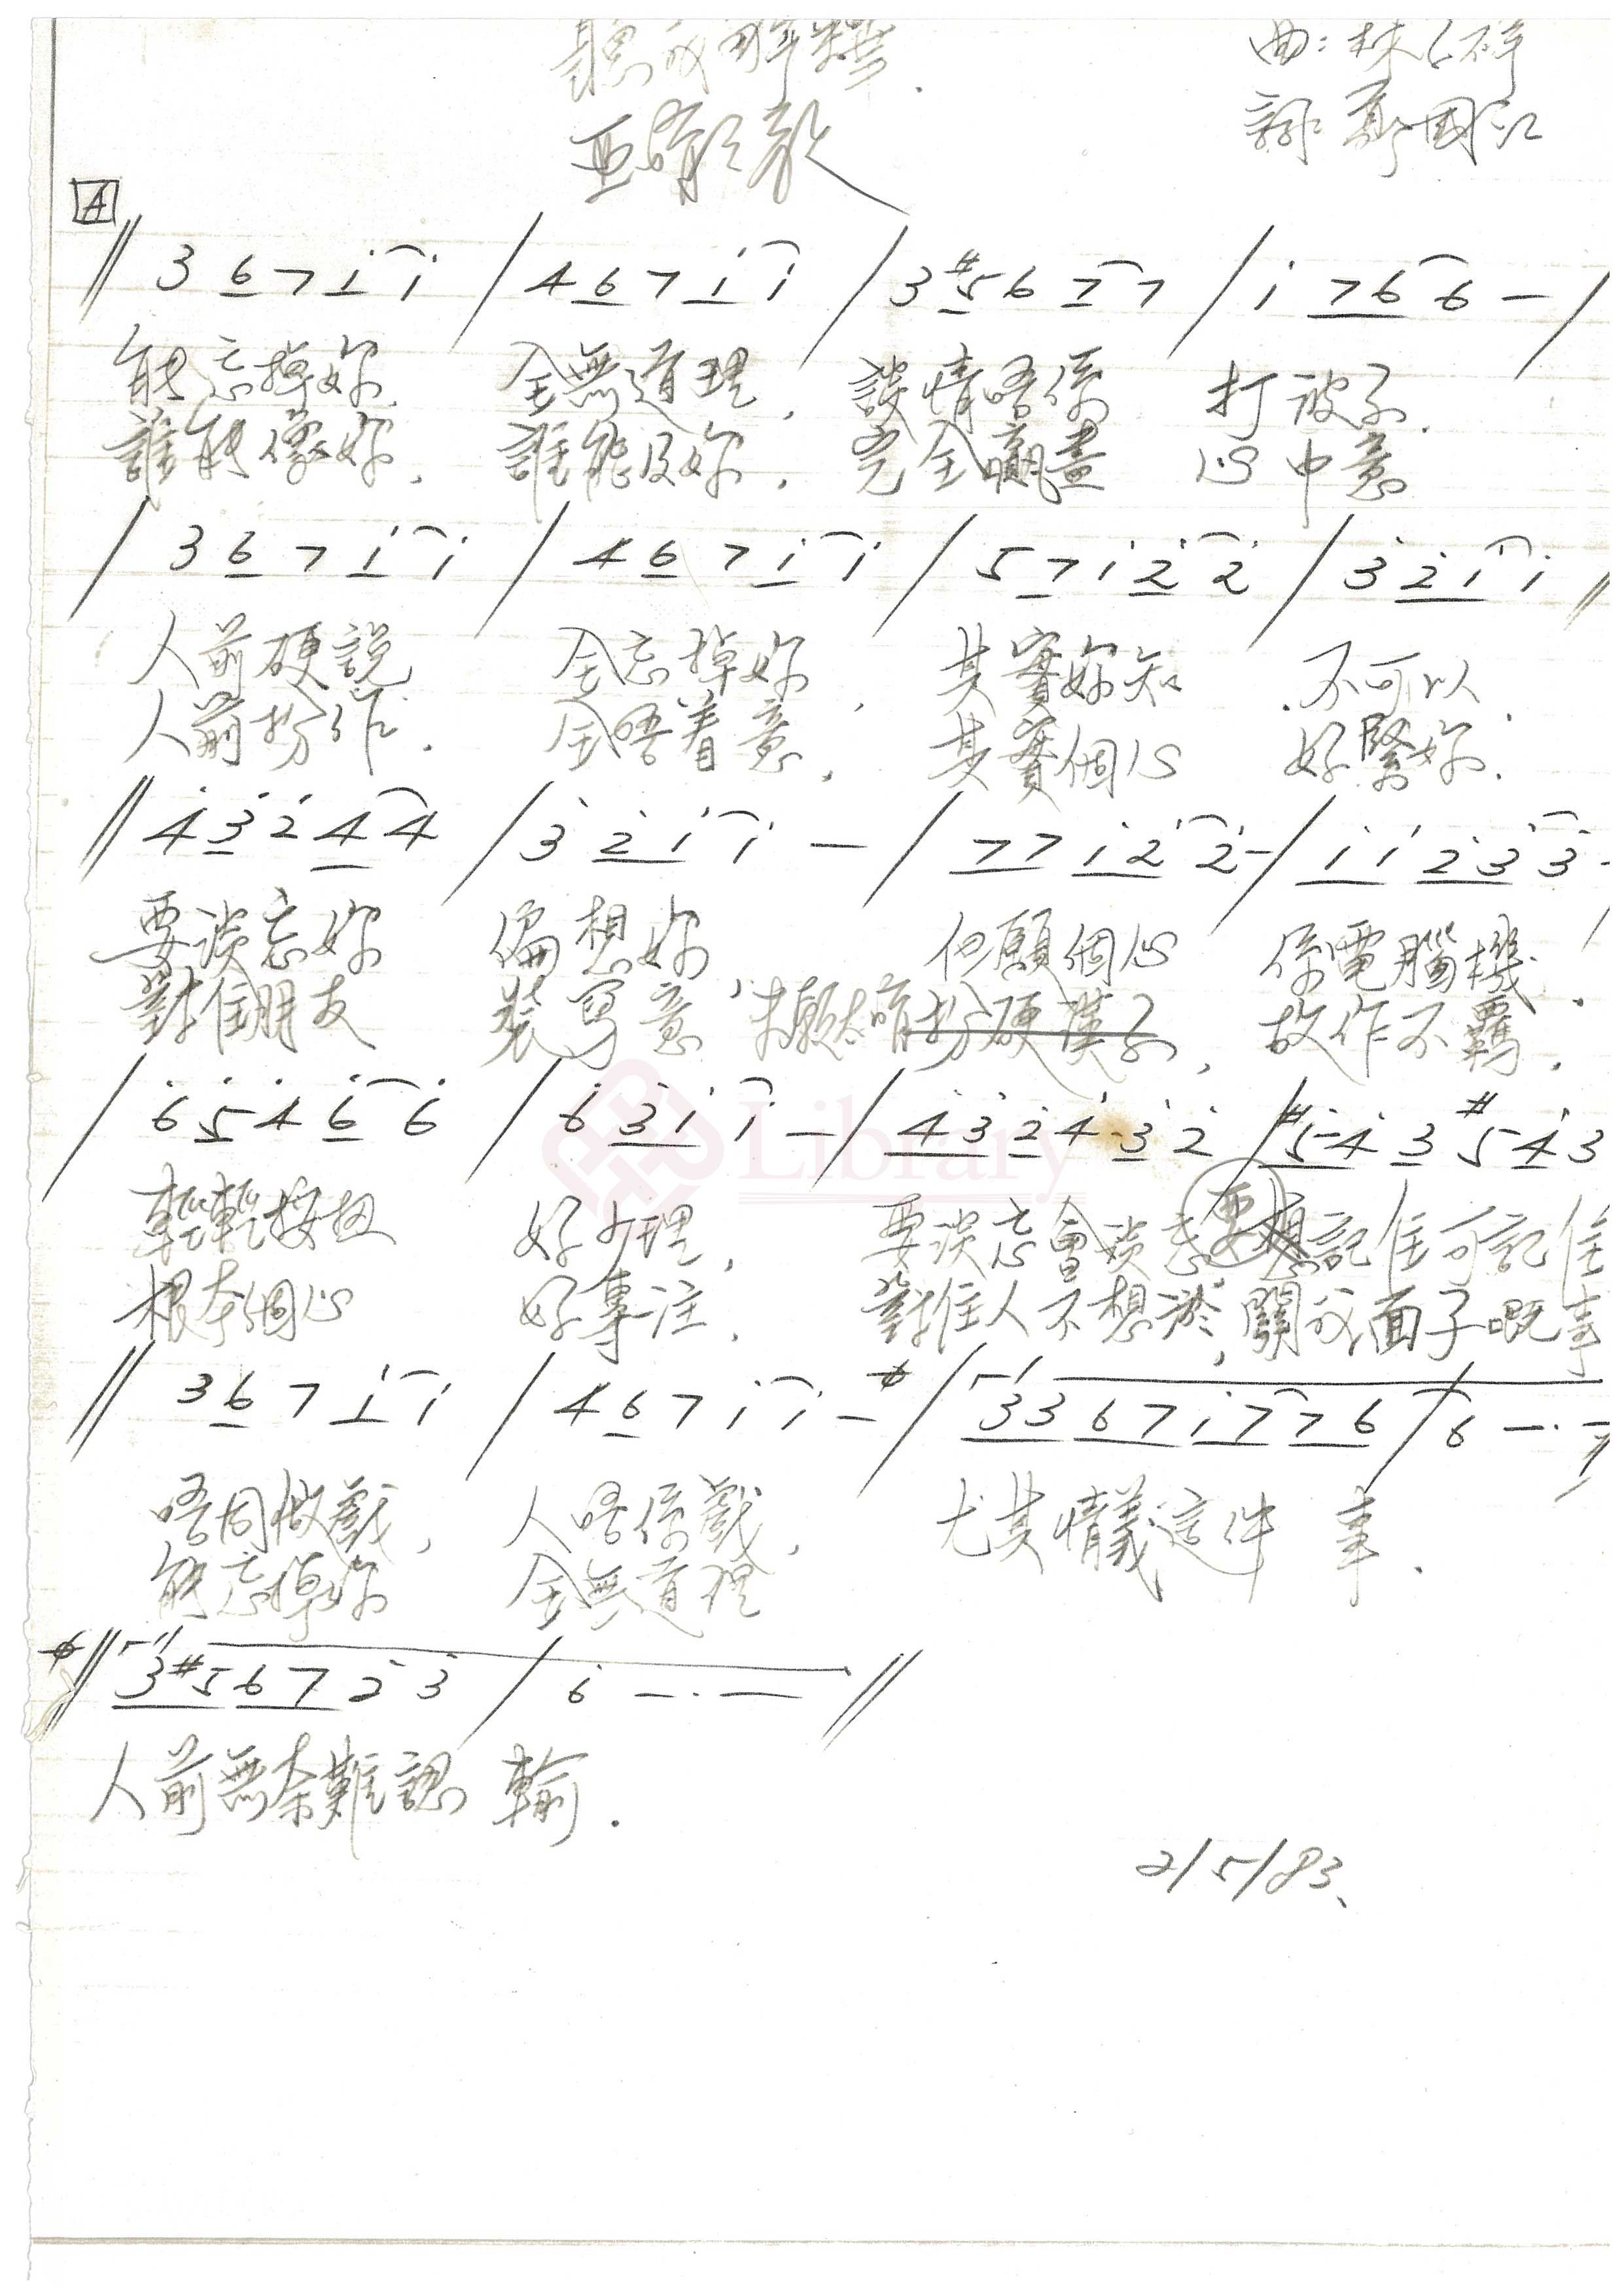 聽我解釋.
曲:林仁祥
詞:鄭國江
A
// 3 6 7 i i / 4 6 7 i i / 3 #5 6 7 7 / i 7 6 6 — /
能忘掉妳. 全無道理. 談情唔係 打波子.
誰能像妳. 誰能及妳. 完全贏盡 心中意
/ 3 6 7 i i / 4 6 7 i i / 5 7 i 2 2 / 3 2 i i //
人前硬說 全忘掉妳. 其實妳知 不可以.
人前扮作. 全唔着意. 其實個心 好緊妳.
// 4 3 2 4 4 / 3 2 i i — / 7 7 i 2 2 — / i i 2 3 3 -
要談忘妳 偏想妳 但願個心 係電腦機.
對住朋友 裝寫意 扮硬漢子, 故作不羈.
/ 6 5 4 6 6 / 6 3 i i — / 4 3 2 4 3 2 / #5 4 3 #5 4 3
輕輕按扭 好少理, 要談忘會談忘 要想記住可記住
根本個心 好專注. 對住人不想談, 關於面子嘅事
// 3 6 7 i i / 4 6 7 i i — / 3 3 6 7 i 7 7 6 / 6 — ·
唔同做戲, 人唔係戲. 尤其情義這件 事.
能忘掉妳 全無道理
// 3 #5 6 7 2 3 / 6 — · — //
人前無奈難認 輸.
2/5/83
Library